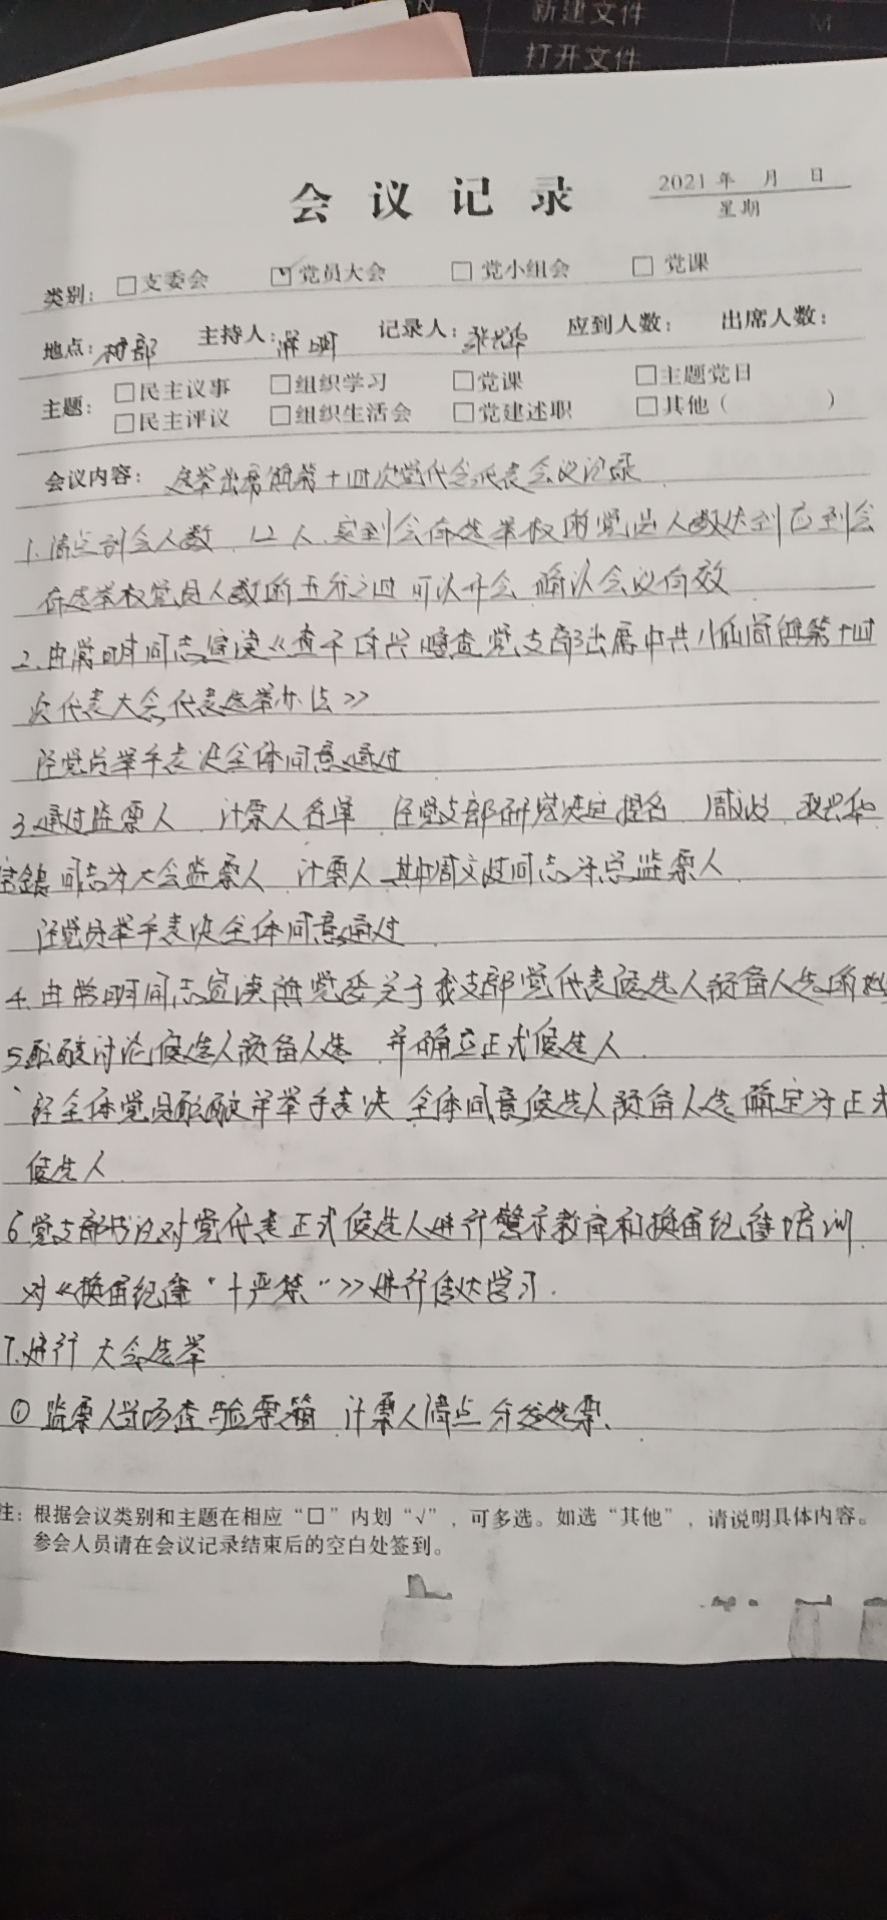 新建文件
M
打开文件
会议记录
2021年 月 日
星期
类别: □支委会 ☑党员大会 □党小组会 □党课
地点:村部 主持人: 明 记录人: 华 应到人数: 出席人数:
主题: □民主议事 □组织学习 □党课 □主题党日
□民主评议 □组织生活会 □党建述职 □其他( )
会议内容: 选举出席镇第十四次党代会代表会议记录
1.清点到会人数 12人.实到会有选举权的党员人数达到应到会
有选举权党员人数的五分之四 可以开会 确认会议有效
2.由常明同志宣读《查干 党支部出席中共八面城镇第十四
次代表大会代表选举办法》
经党员举手表决全体同意通过
3.通过监票人 计票人名单 经党支部研究决定提名 周文波
同志为大会监票人 计票人 其中周文波同志为总监票人
经党员举手表决全体同意通过
4.由常明同志宣读镇党委关于我支部党代表候选人预备人选的
5.酝酿讨论候选人预备人选 并确立正式候选人.
经全体党员酝酿并举手表决 全体同意候选人预备人选确定为正式
候选人
6党支部书记对党代表正式候选人进行警示教育和换届纪律培训.
对《换届纪律"十严禁"》进行传达学习.
7.进行大会选举
①监票人当场查验票箱 计票人清点分发选票.
注: 根据会议类别和主题在相应“□”内划“√”,可多选。如选“其他”,请说明具体内容。
参会人员请在会议记录结束后的空白处签到。